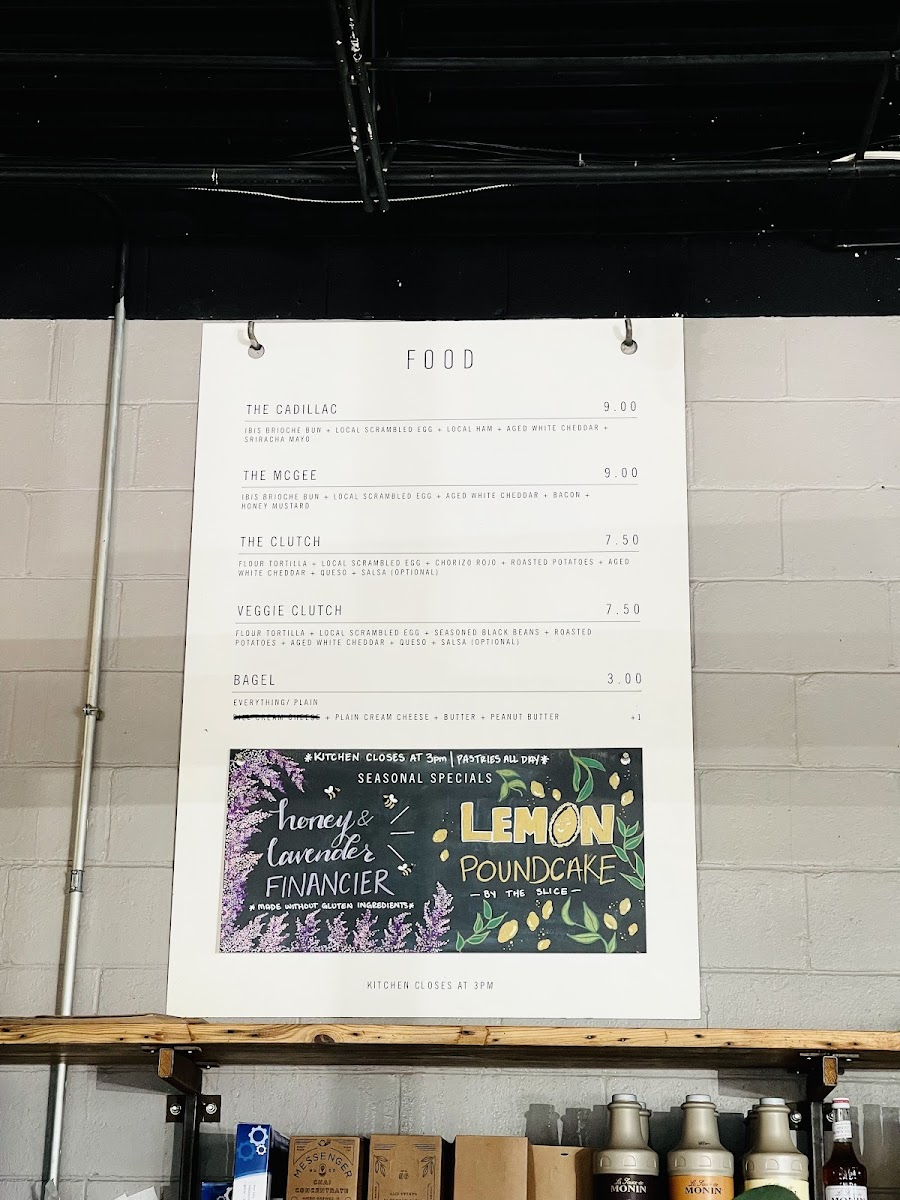 FOOD
THE CADILLAC 9.00
IBIS BRIOCHE BUN + LOCAL SCRAMBLED EGG + LOCAL HAM + AGED WHITE CHEDDAR +
SRIRACHA MAYO
THE MCGEE 9.00
IBIS BRIOCHE BUN + LOCAL SCRAMBLED EGG + AGED WHITE CHEDDAR + BACON +
HONEY MUSTARD
THE CLUTCH 7.50
FLOUR TORTILLA + LOCAL SCRAMBLED EGG + CHORIZO ROJO + ROASTED POTATOES + AGED
WHITE CHEDDAR + QUESO + SALSA (OPTIONAL)
VEGGIE CLUTCH 7.50
FLOUR TORTILLA + LOCAL SCRAMBLED EGG + SEASONED BLACK BEANS + ROASTED
POTATOES + AGED WHITE CHEDDAR + QUESO + SALSA (OPTIONAL)
BAGEL 3.00
EVERYTHING/ PLAIN
CREAM CHEESE + PLAIN CREAM CHEESE + BUTTER + PEANUT BUTTER +1
*KITCHEN CLOSES AT 3pm | PASTRIES ALL DAY*
SEASONAL SPECIALS
honey &
lavender
FINANCIER
* MADE WITHOUT GLUTEN INGREDIENTS *
LEMON
POUNDCAKE
— BY THE SLICE —
KITCHEN CLOSES AT 3PM
MESSENGER
CHAI
CONCENTRATE
MONIN
MONIN